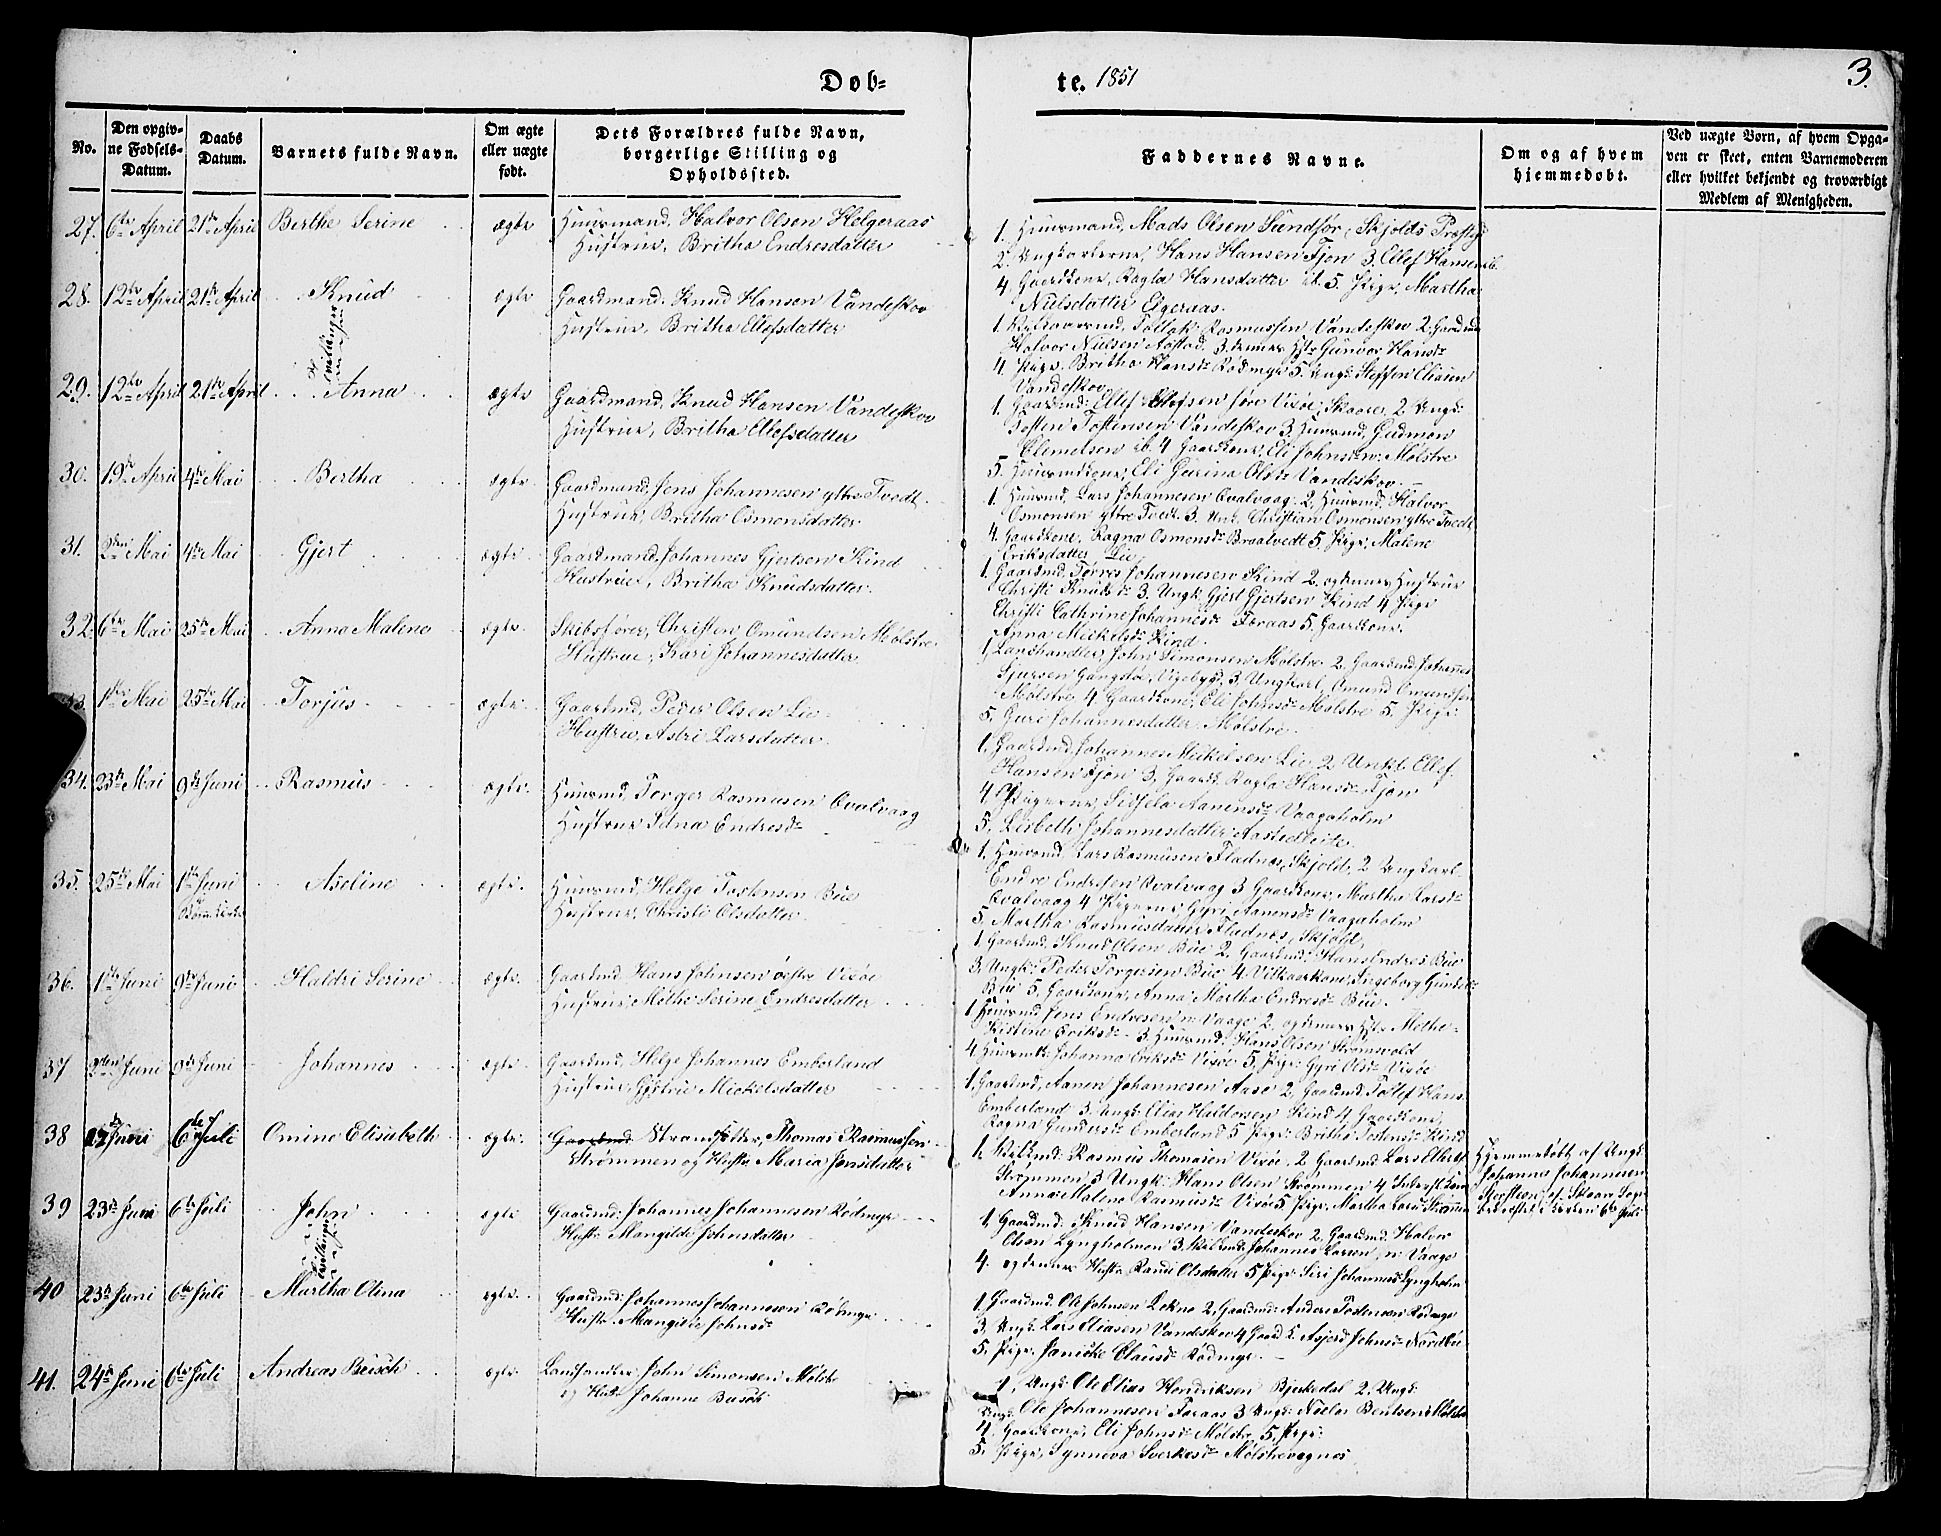 Døb-
te. 1851
3.
No.
Den opgiv-
ne Fødsels-
Datum.
Daabs
Datum.
Barnets fulde Navn.
Om ægte
eller uægte
født.
Dets Forældres fulde Navn,
borgerlige Stilling og
Opholdssted.
Faddernes Navne.
Om og af hvem
hjemmedøbt.
Ved uægte Børn, af hvem Opga-
ven er skeet, enten Barnemoderen
eller hvilket bekjendt og troværdigt
Medlem af Menigheden.
27. 6te April 21de April Berthe Serine ægte Huusmand, Halvor Olsen Helgeraas
Hustrue, Britha Endresdatter
1. Huusmand, Mads Olsen Sundfør, Skjolds Præstgj
2. Ungkarlene, Hans Hansen Tjøn 3. Ellef Hansen ib.
4. Gaardkone, Ragla Hansdatter ib. 5. Pige, Martha
Nielsdatter Elgeraas.
28. 12te April 21de April Knud ægte Gaardmand, Knud Hansen Vandeskov
Hustrue, Britha Ellefsdatter
Tvillinger
1. Vilkaarsmd, Tollak Rasmussen Vandeskov 2. Gaardmd
Halvor Nielsen Aastad. 3. dennes Hst. Gunvor Hansd.
4. Pige Britha Hansd. Rødmyr 5. Ungk. Steffen Eliasen
Vandeskov.
29. 12te April 21de April Anna ægte Gaardmand, Knud Hansen Vandeskov
Hustrue, Britha Ellefsdatter
1. Gaardmd: Ellef Ellefsen søre Vixøe, Skaare, 2 Ungk:
Tosten Tostensen Vandeskov 3. Huusmd, Gudmon
Clemetsen ib. 4 Gaardkone, Eli Johnsd. Mølstre
5. Huusmdkone, Eli Gurina Olsd. Vandeskov.
30. 19de April 4de Mai Bertha ægte Gaardmand, Jens Johannesen yttre Tvedt
Hustrue, Britha Osmonsdatter
1. Huusmd, Lars Johannesen Qvalvaag. 2. Huusmd, Halvor
Osmonsen yttre Tvedt. 3. Unk. Christian Osmonsen yttre Tvedt
4. Gaardkone, Ragna Osmonsd. Braalvedt 5. Pige, Malene
Eriksdatter Lie.
31. 2den Mai 4de Mai Gjert ægte Gaardmand, Johannes Gjertsen Kind
Hustrue, Britha Knudsdatter.
1. Gaardmd. Tørres Johannesen Kind 2. og dennes Hustrue
Christi Knudsd. 3. Ungk. Gjert Gjertsen Kind 4 Pige
Christi Cathrine Johannesd. Foraas 5. Gaardkone.
Anna Mickelsd. Kind.
32. 6te Mai 25de Mai Anna Malene ægte Skibsfører, Christen Omundsen Mølstre
Hustrue, Kari Johannesdatter
1, Landhandler, John Simonsen Mølstre. 2. Gaardmd Johannes
Sjursen Gangstøe, Vigebygd, 3, Ungkarl, Omund Omundsen
Mølstre 4. Gaardkone, Eli Johnsd. Mølstre 5. Pige:
5, Guri Johannesdatter Mølstre.
33. 1ste Mai 25de Mai Torjus ægte Gaardmd, Peder Olsen Lie
Hustrue, Astri Larsdatter
1. Gaardmd Johannes Mickelsen Lie 2 Unkl. Ellef
Hansen Tjøn 3, Gaardk. Ragla Hansd. Tjøn
4, Pigerne, Sidsela Aanensd. Vaagaholm
5, Lisbeth Johannesdatter Aastedleite.
34. 23de Mai 9de Juni Rasmus ægte Huusmd, Torger Rasmusen Qvalvaag
Hustrue Edna Endresd.
1. Huusmd. Lars Rasmusen Fladnes, Skjold, 2 Ungkarl
Endre Endresen Qvalvaag 3 Gaardkone, Martha Larsd.
Qvalvaag 4 Pigerne, Gyri Aanensd. Vaagaholm
5. Martha Rasmusdatter Fladnes, Skjold,
35. 25de Mai 1ste Juni
Bømmelkirke Aseline ægte Huusmd, Helge Tostensen Bue
Hustrue, Christi Olsdatter
1. Gaardmd. Knud Olsen Bue 2. Gaardmd. Hans Endres Bue
3, Ungk: Peder Torgersen Bue 4. Vilkaarkone, Ingeborg Gundersd.
Bue 5, Gaardkone, Anna Martha Endresd. Bue.
36. 1ste Juni 9de Juni Haldri Serine ægte Gaardmd. Hans Johnsen østre Vixøe
Hustrue, Methe Serine Endresdatter
1 Huusmd Jens Endresen n. Vaage 2. og dennes Hst. Methe
Kistine Eriksd. 3. Huusmd. Hans Olsen Strømsvold
4, Huusmk: Johanna Eriksd. Vixøe 5, Pige: Gyri Olsd. Vixøe
37 2den Juni 9de Juni Johannes ægte Gaardmd, Helge Johannes Emberland
Hustrue, Gjertrue Mickelsdatter
1, Gaardmd, Aanen Johannesen Aasø 2, Gaardmd, Tollef Hans.
Emberland 3. Ungk. Elias Haldorsen Kind 4 Gaardkone,
Ragna Gundersd. Emberland 5 Pige: Britha Tostensd. Kind
38 17de Juni 6te Juli Omine Elisabeth ægte Gaardmd Strandsitter, Thomas Rasmussen
Strømmen og Hstr Maria Jensdatter
1, Vilkmd: Rasmus Thomasen Vixøe, 2 Gaardmd Lars Ellefs.
Strømmen 3 Ungk. Hans Olsen Strømmen 4 Inderstkone
Anna Malene Rasmusd. Vixøe 5, Pige, Martha Larsd. Strømm
Hjemmedøbt af Ungk.
Johannes Johannesen
af Skaare Sogn
bekræftet i kirken 6te Juli
39 23de Juni 6te Juli John ægte Gaardmd: Johannes Johannesen Rødmyr
Hustr. Mangilde Johnsdatter
Tvillinger
1, Gaardmd: Knud Hansen Vandeskov 2, Gaardmd, Halvor
Olsen Lyngholmen 3, Vilkmd: Johannes Larsen, n. Vaage
4. og dennes Hustr Randi Olsdatter 5 Pige: Siri Johannesd. Lyngholm
40 23de Juni 6te Juli Martha Olina ægte Gaardmd: Johannes Johannesen Rødmyr
Hustr. Mangilde Johnsd.
1, Gaardmd. Ole Johnsen Løkne 2, Gaardmd: Anders Tostensen Rødmyr
3, Ungk: Lars Eliasen Vandeskov 4 Gaardk. Asjerd Johnsd. Nordbø
5, Pige Janicke Clausd. Rødmyr.
41. 24de Juni 6te Juli Andreas Busch ægte Landhandler John Simonsen Mølstre
og Hustr Johanne Busch
1, Ungk: Ole Elias Hendriksen Bjerkedal 2. Ungk:
Ungk. Ole Johannesen Foraas 3 Ungk: Nicolai Bentsen Mølstre
4 Gaardkone, Eli Johnsd. Mølstre, 5, Pige:
5. Pige, Synneva Sverkesd. Mølstrevagnes